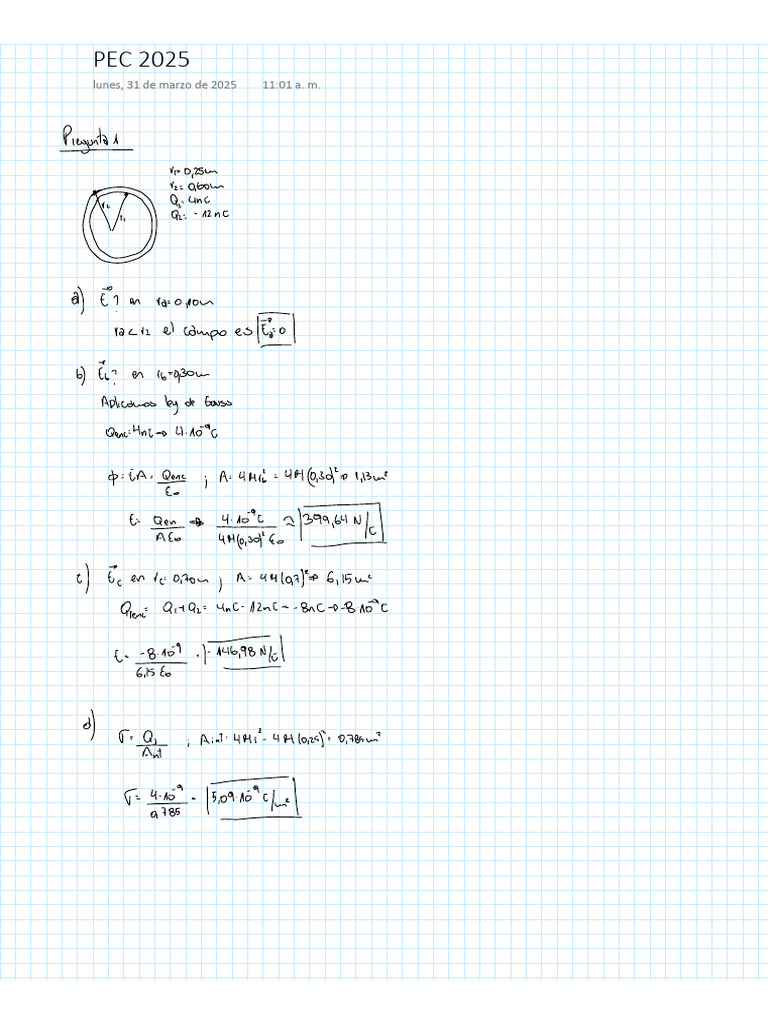 PEC 2025
lunes, 31 de marzo de 2025 11:01 a. m.
Pregunta 1
r₁= 0,25m
r₂= 0,60m
Q₁= 4nC
Q₂= -12nC
r₂
r₁
a) E⃗? en ra=0,10m
ra<r2 el campo es E⃗a=0
b) E⃗b? en rb=0,30m
Aplicamos ley de Gauss
Qenc=4nC→ 4·10⁻⁹C
ϕ=EA=Qenc/ε₀ ; A=4πrb²=4π(0,30)²⇒1,13m²
E=Qen/Aε₀ ⇒ 4·10⁻⁹C/4π(0,30)²ε₀ ≈ 399,64 N/C
c) E⃗c en rc=0,70m ; A=4π(0,7)²⇒ 6,15m²
Qenc= Q₁+Q₂= 4nC-12nC=-8nC→-8·10⁻⁹C
E= -8·10⁻⁹/6,15 ε₀ = -146,98 N/C
d) σ= Q₁/Aint ; Aint=4πr₁²=4π(0,25)²=0,785m²
σ= 4·10⁻⁹/0,785 = 5,09·10⁻⁹ C/m²